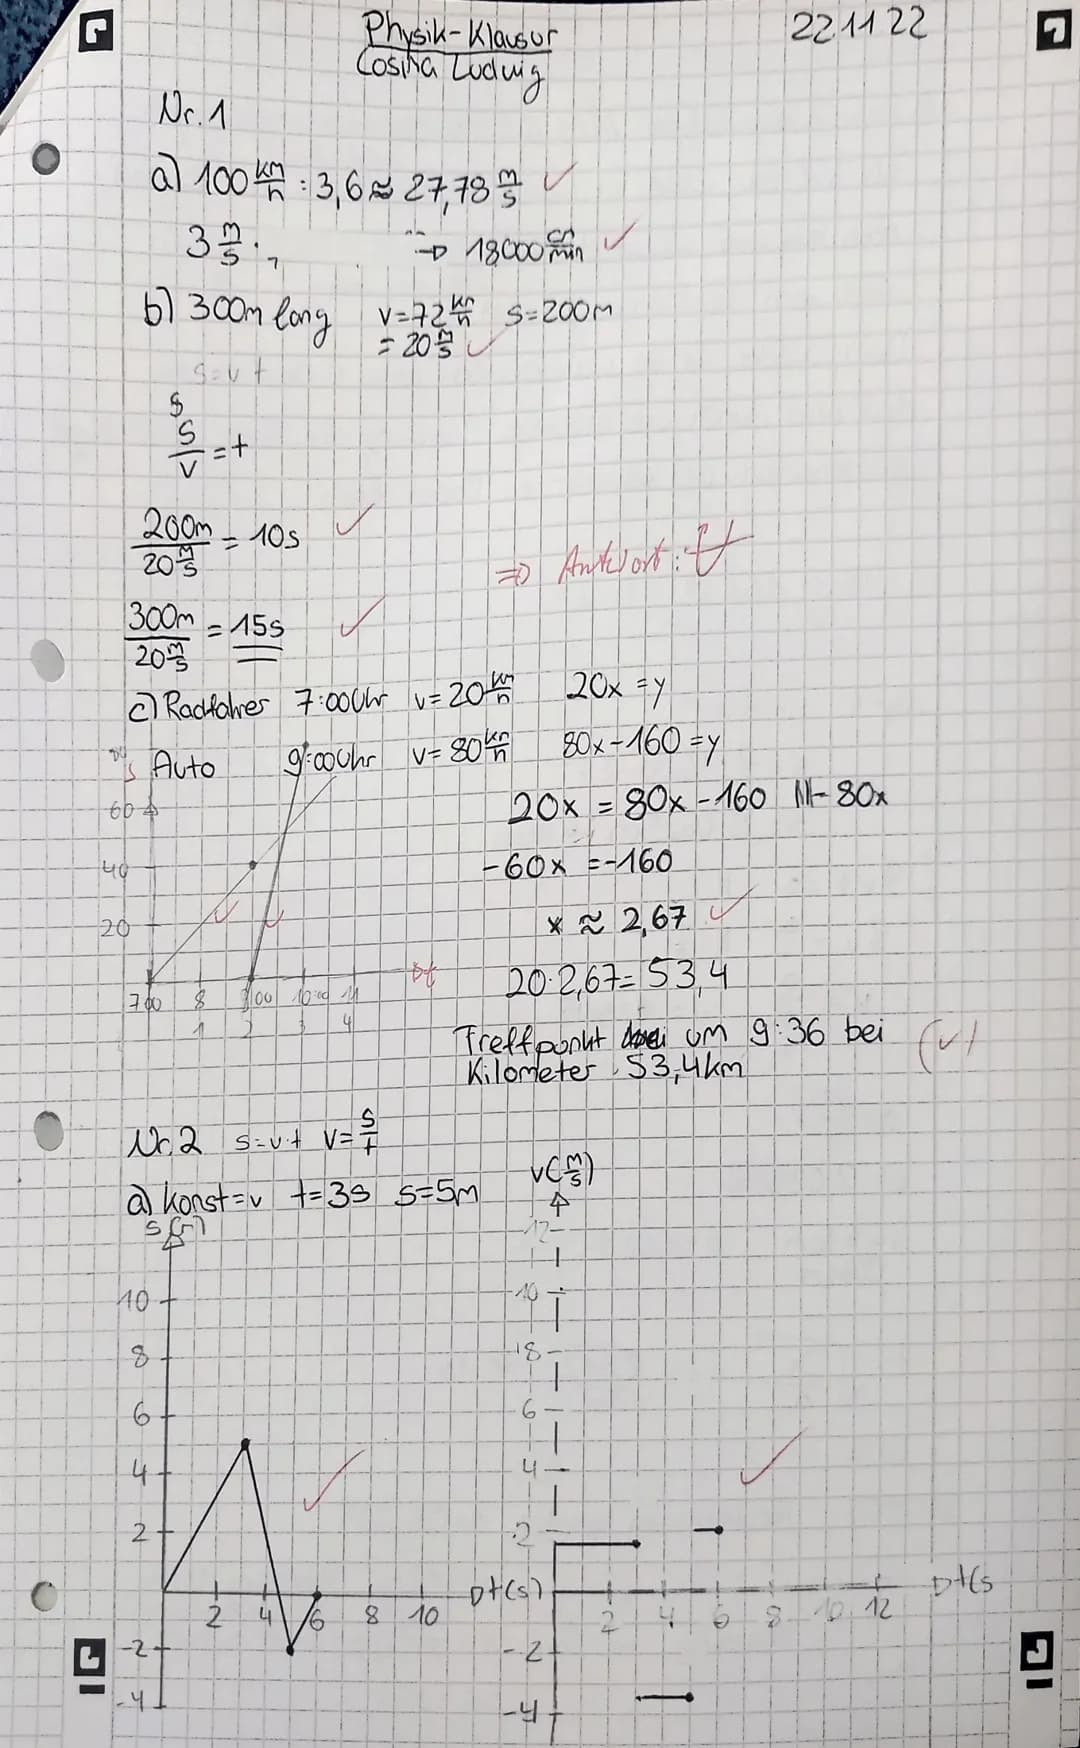 Physik-Klausur
22 11 22
Cosima Ludwig
Nr. 1
a) 100 km/h : 3,6 ≈ 27,78 m/s ✓
3 m/s · → 18000 cm/min ✓
b) 300m long v=72 km/h s=200m
= 20 m/s ✓
s=v t
s
s/v = t
200m / 20 m/s = 10s ✓
⇒ Antwort:
300m / 20 m/s = 15s ✓
c) Radfahrer 7:00Uhr v=20 km/h 20x = y
s Auto 9:00Uhr v= 80 km/h 80x-160 = y
60
20x = 80x - 160 |- 80x
40
-60x = -160
x ≈ 2,67 ✓
20
Δt
20·2,67= 53,4
7 00 8 9 00 10 00 11
1 2 3 4
Treffpunkt um 9:36 bei (✓)
Kilometer 53,4km
Nr. 2 s=v·t v= s/t
a) konst=v t=3s s=5m
v(m/s)
12
10
8
6
4
2
-2
-4
2 4 6 8 10 12
10
8
6
4
2
-2
-4
2 4 6 8 10
t(s)
t(s